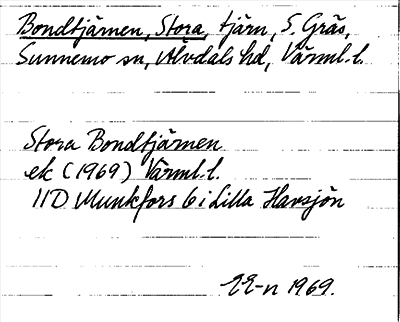 Bondtjärnen, Stora, tjärn, S. Gräs,
Sunnemo sn, Älvdals hd, Värml. l.
Stora Bondtjärnen
ek (1969) Värml. l.
11D Munkfors 6 i Lilla Havsjön
1969.